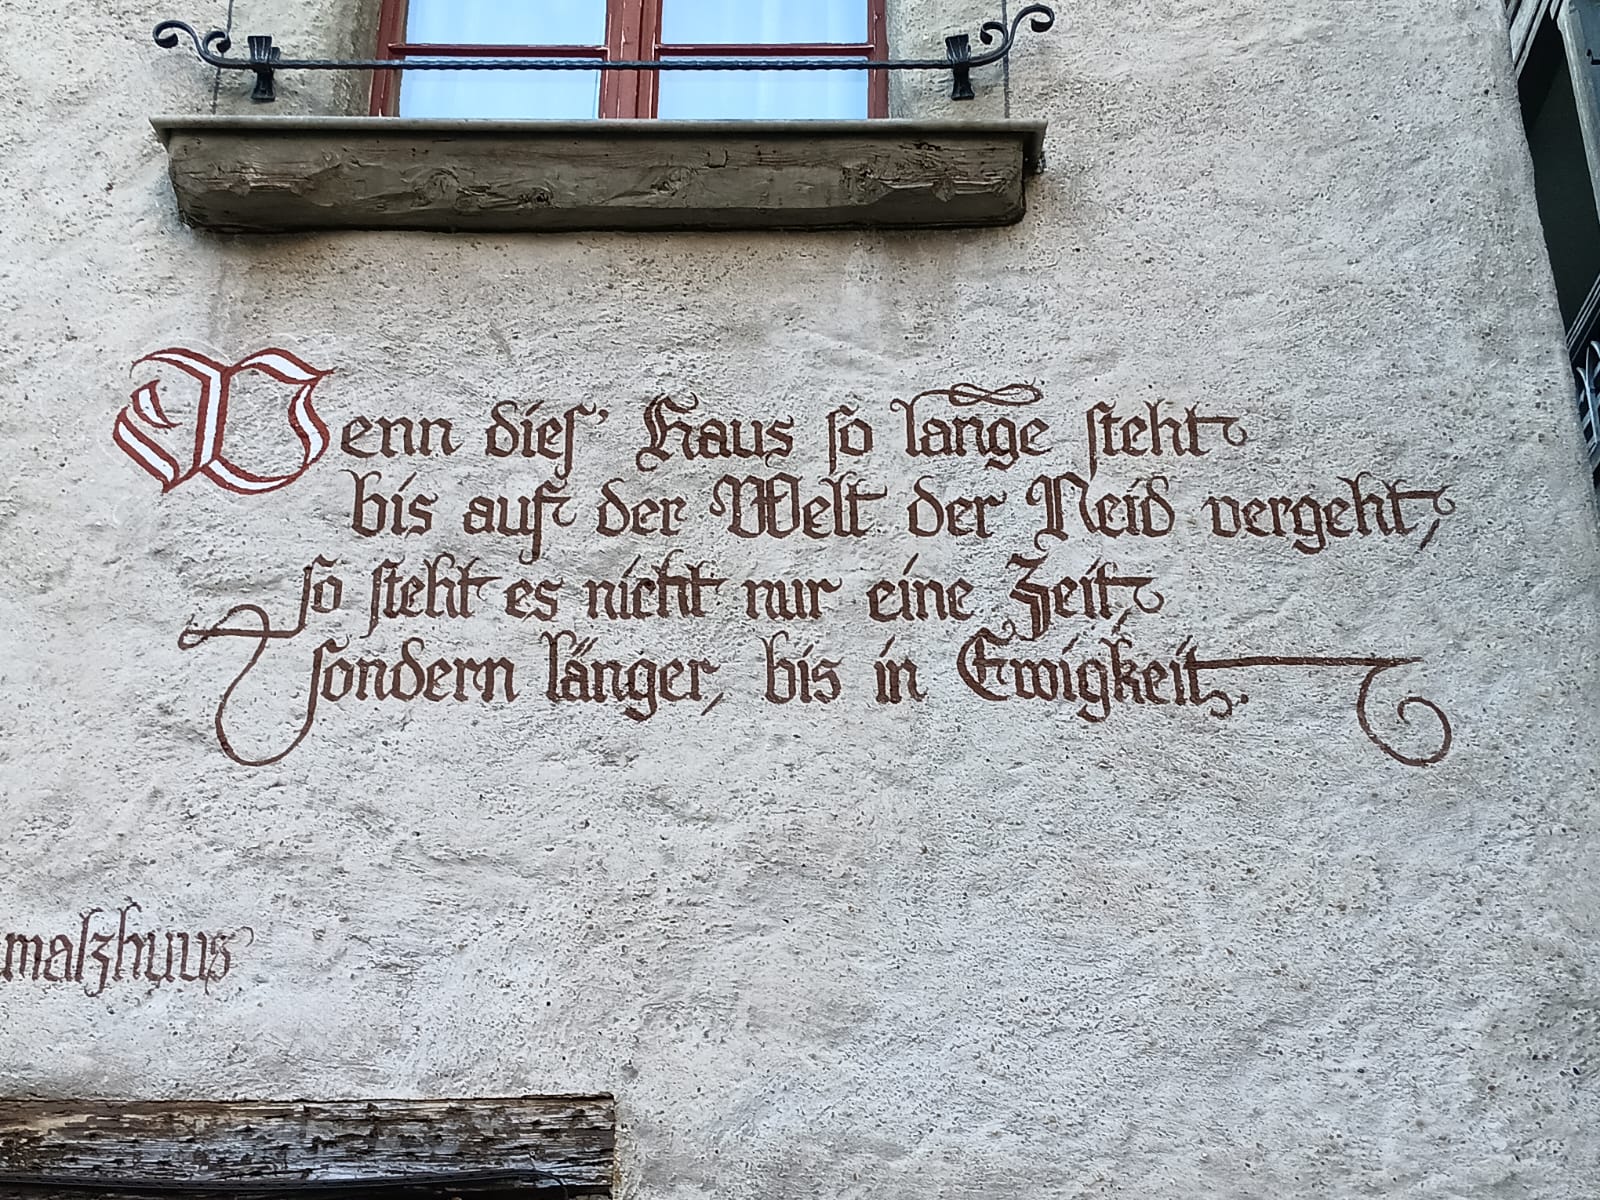 Wenn dies' Haus so lange steht
bis auf der Welt der Neid vergeht,
so steht es nicht nur eine Zeit,
sondern länger, bis in Ewigkeit.
malzhuus